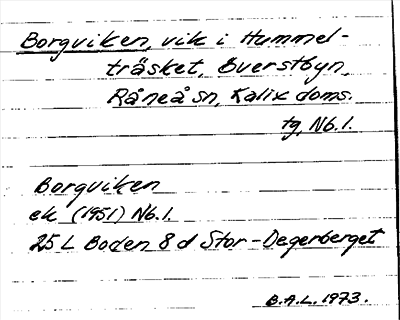 Borgviken, vik i Hummel-
träsket, Överstbyn,
Råneå sn, Kalix doms.
tg, Nb.l.
Borgviken
ek (1951) Nb.l.
25 L Boden 8 d Stor-Degerberget
B.A.L. 1973.